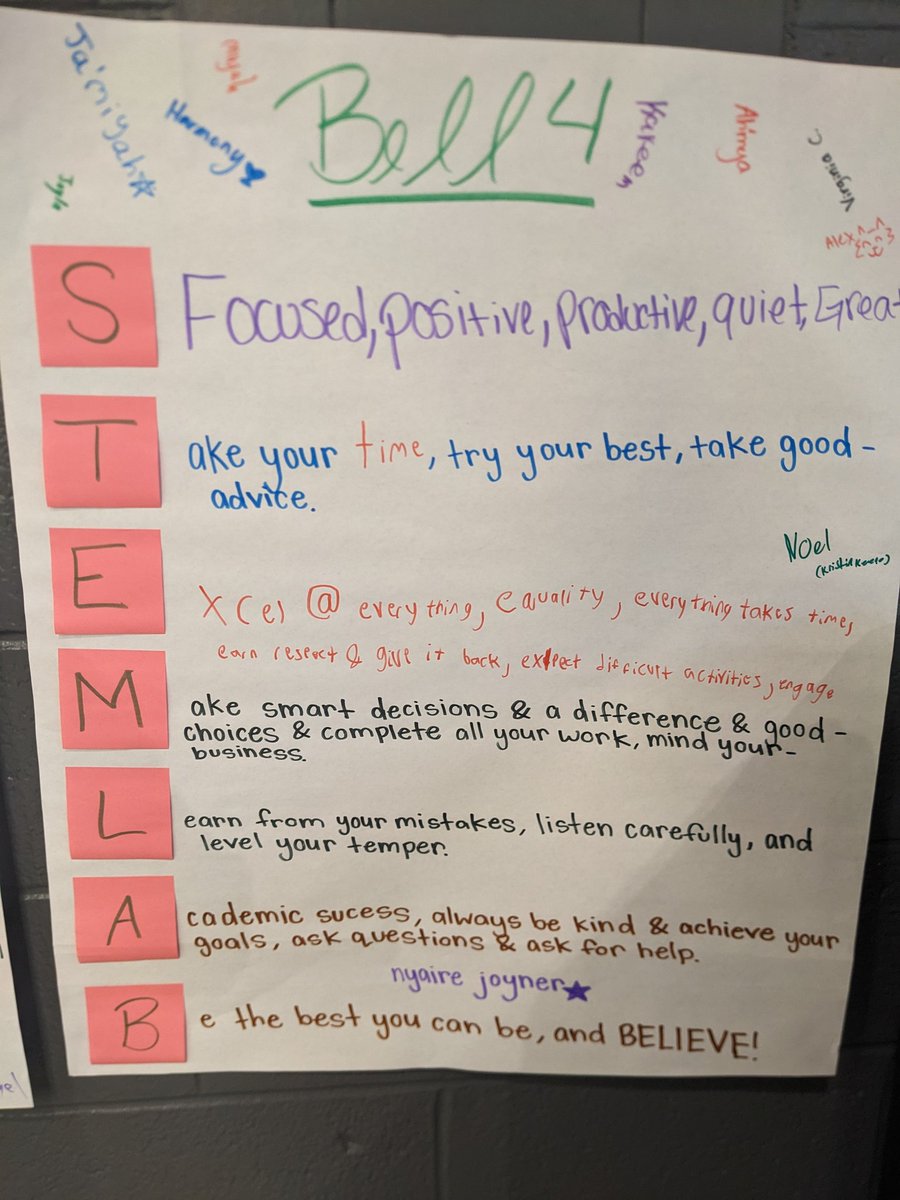 Ja'miyah
Harmony
Bell 4
Karee
Ahmya
Virginia C
Alex
S Focused, positive, productive, quiet, Great
T ake your time, try your best, take good-
advice.
Noel
E Xcel @ everything, equality, everything takes time,
earn resect & give it back, expect difficult activities, engage
M ake smart decisions & a difference & good-
choices & complete all your work, mind your-
business.
L earn from your mistakes, listen carefully, and
level your temper.
A cademic sucess, always be kind & achieve your
goals, ask questions & ask for help.
nyaire joyner
B e the best you can be, and BELIEVE!